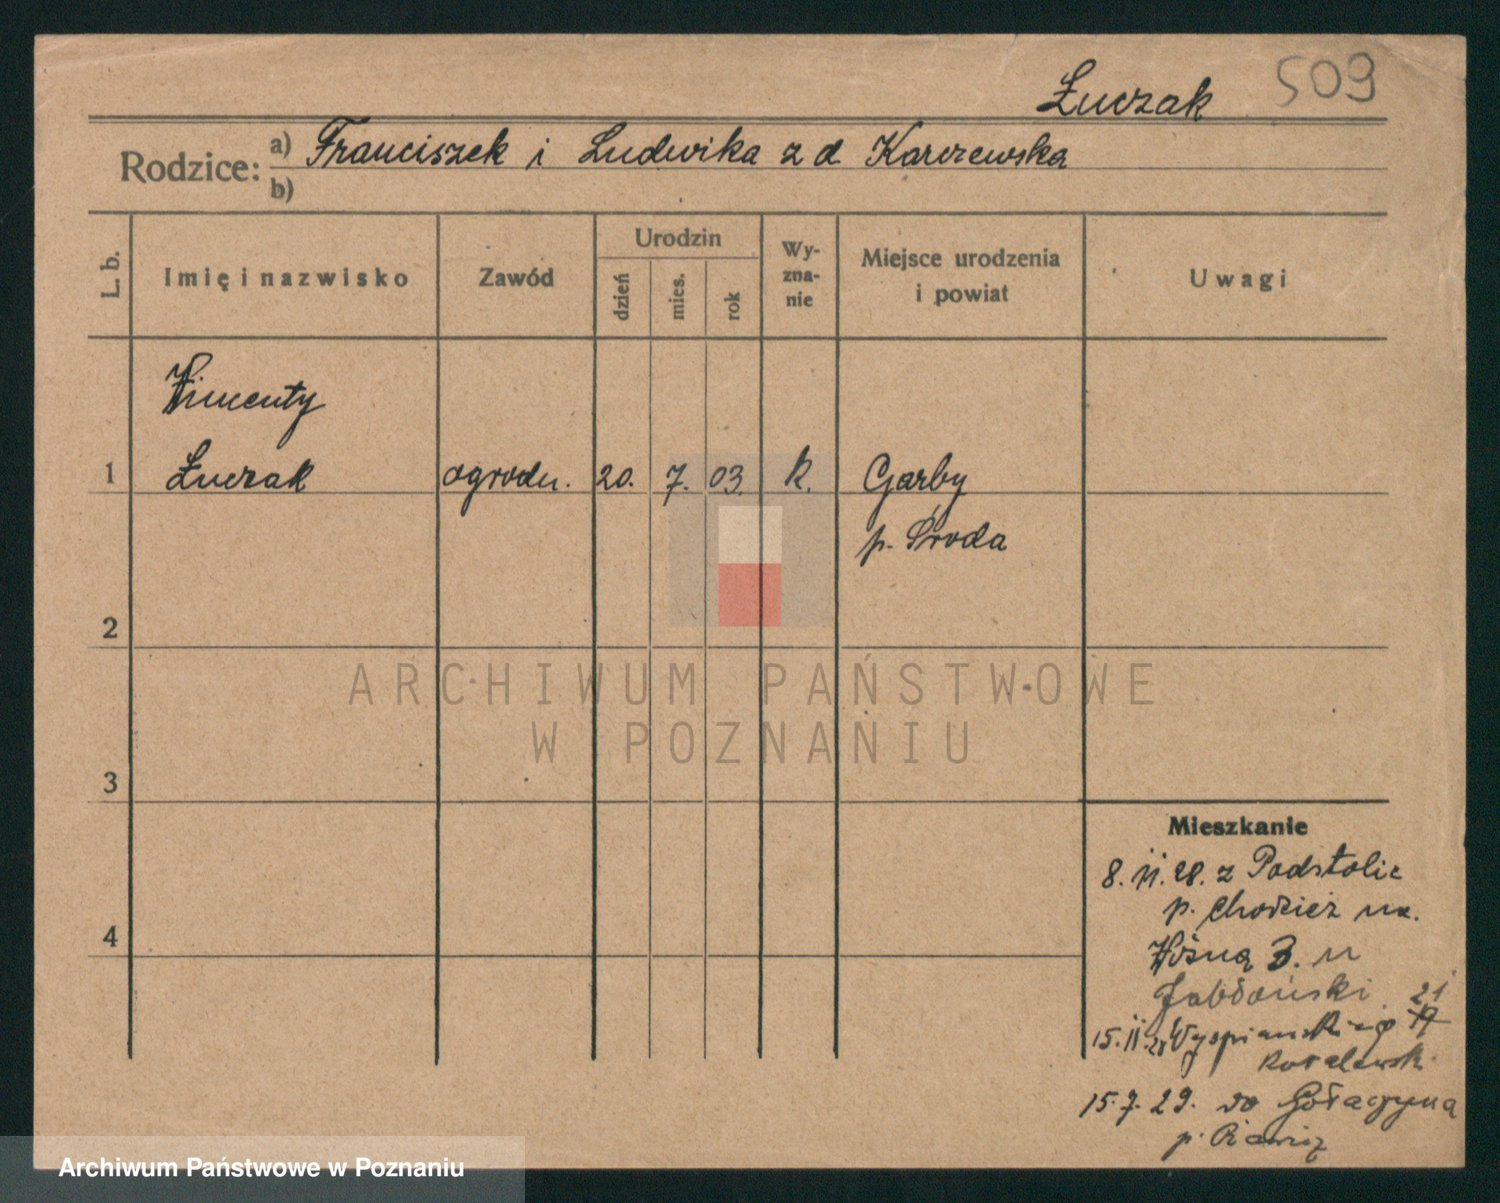 Łuczak 509
Rodzice: a) Franciszek i Ludwika z d Karczewska
b)
L. b.
Imię i nazwisko
Zawód
Urodzin
dzień
mies.
rok
Wy-
zna-
nie
Miejsce urodzenia
i powiat
Uwagi
Wincenty
1 Łuczak ogrodn. 20. 7. 03. k. Garby
p. Środa
2
ARCHIWUM PAŃSTWOWE
W POZNANIU
3
Mieszkanie
8. 11. 28. z Podstolic
p. Chodzież na
4
Wośną 3. u
Jabłoński. 21
15. 11. 28 Wyspiańskiego 19
Kowalewski
15. 7. 29. do
p.
Archiwum Państwowe w Poznaniu